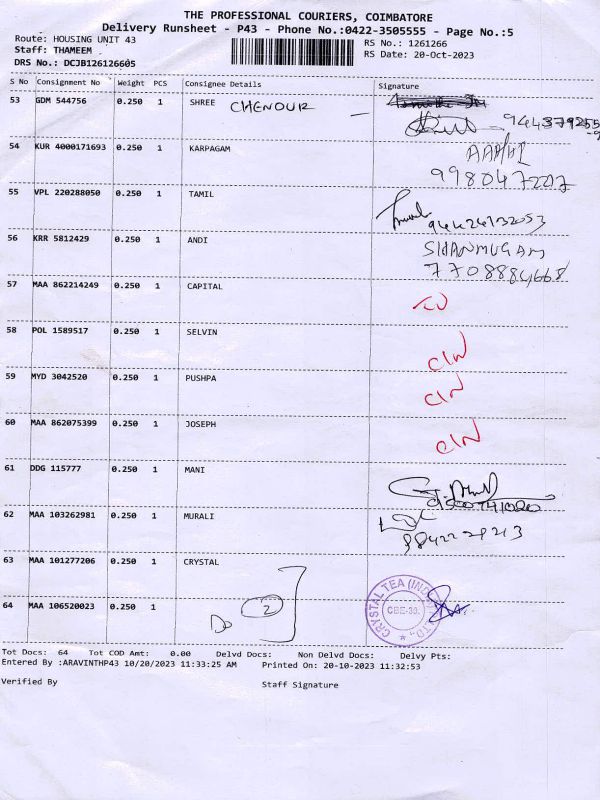 THE PROFESSIONAL COURIERS, COIMBATORE
Delivery Runsheet - P43 - Phone No.:0422-3505555 - Page No.:5
Route: HOUSING UNIT 43
RS No.: 1261266
Staff: THAMEEM
RS Date: 20-Oct-2023
DRS No.: DCJB126126605
S No Consignment No Weight PCS Consignee Details Signature
53 GDM 544756 0.250 1 SHREE CHENOUR
54 KUR 4000171693 0.250 1 KARPAGAM
55 VPL 220288050 0.250 1 TAMIL
56 KRR 5812429 0.250 1 ANDI SHANMUGAM
7708884668
57 MAA 862214249 0.250 1 CAPITAL
58 POL 1589517 0.250 1 SELVIN CIN
59 MYD 3042520 0.250 1 PUSHPA CIN
60 MAA 862075399 0.250 1 JOSEPH CIN
61 DDG 115777 0.250 1 MANI
62 MAA 103262981 0.250 1 MURALI
63 MAA 101277206 0.250 1 CRYSTAL
64 MAA 106520023 0.250 1 Do 2 CRYSTAL TEA (INDIA) LTD., CBE-30.
Tot Docs: 64 Tot COD Amt: 0.00 Delvd Docs: Non Delvd Docs: Delvy Pts:
Entered By :ARAVINTHP43 10/20/2023 11:33:25 AM Printed On: 20-10-2023 11:32:53
Verified By Staff Signature